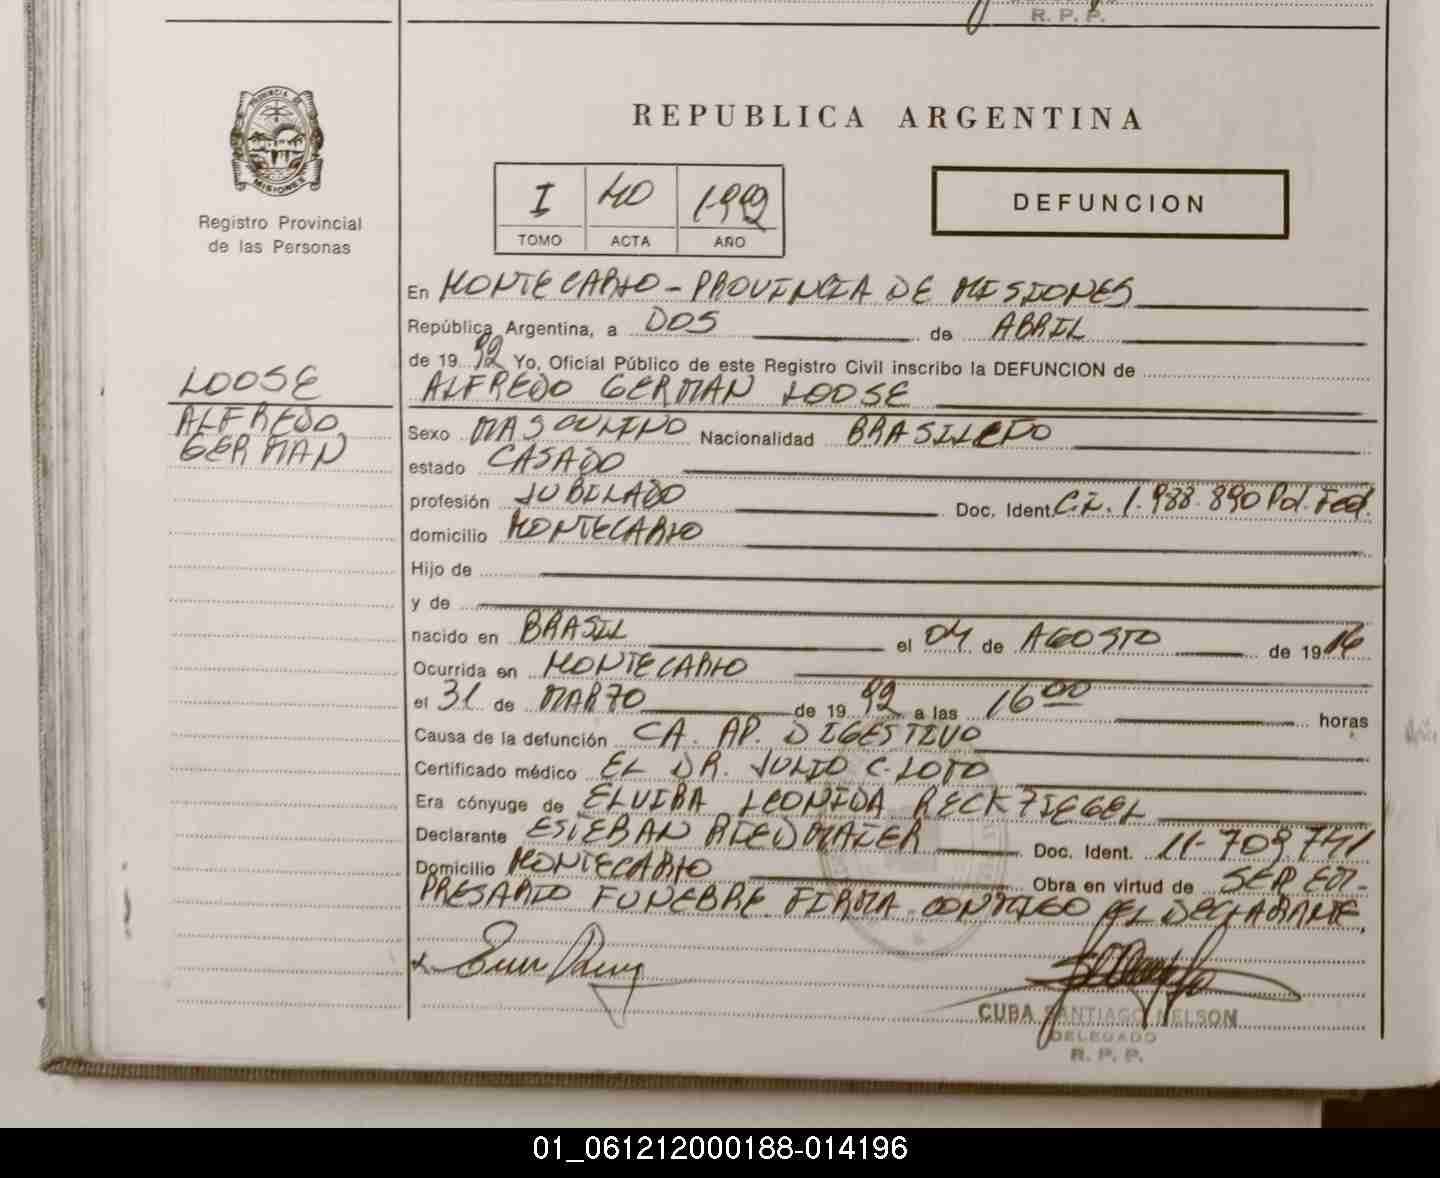 R. P. P.
PROVINCIA DE
MISIONES
Registro Provincial
de las Personas
REPUBLICA ARGENTINA
I 40 1992
TOMO ACTA AÑO
DEFUNCION
En MONTECARLO - PROVINCIA DE MISIONES
República Argentina, a DOS de ABRIL
de 1992 Yo, Oficial Público de este Registro Civil inscribo la DEFUNCION de
ALFREDO GERMAN LOOSE
LOOSE
ALFREDO
GERMAN
Sexo MASCULINO Nacionalidad BRASILEÑO
estado CASADO
profesión JUBILADO Doc. Ident. C.I. 1.988.890 Pol. Fed.
domicilio MONTECARLO
Hijo de
y de
nacido en BRASIL el 04 de AGOSTO de 1916
Ocurrida en MONTECARLO
el 31 de MARZO de 1992 a las 16 00 horas
Causa de la defunción CA. AP. DIGESTIVO
Certificado médico EL DR. JULIO C. LOTO
Era cónyuge de ELVIRA LEONIDA RECKZIEGEL
Declarante ESTEBAN RIEDMAIER Doc. Ident. 11-709741
Domicilio MONTECARLO Obra en virtud de SER EM-
PRESARIO FUNEBRE. FIRMA CONMIGO EL DECLARANTE.
CUBA SANTIAGO NELSON
DELEGADO
R. P. P.
01_061212000188-014196